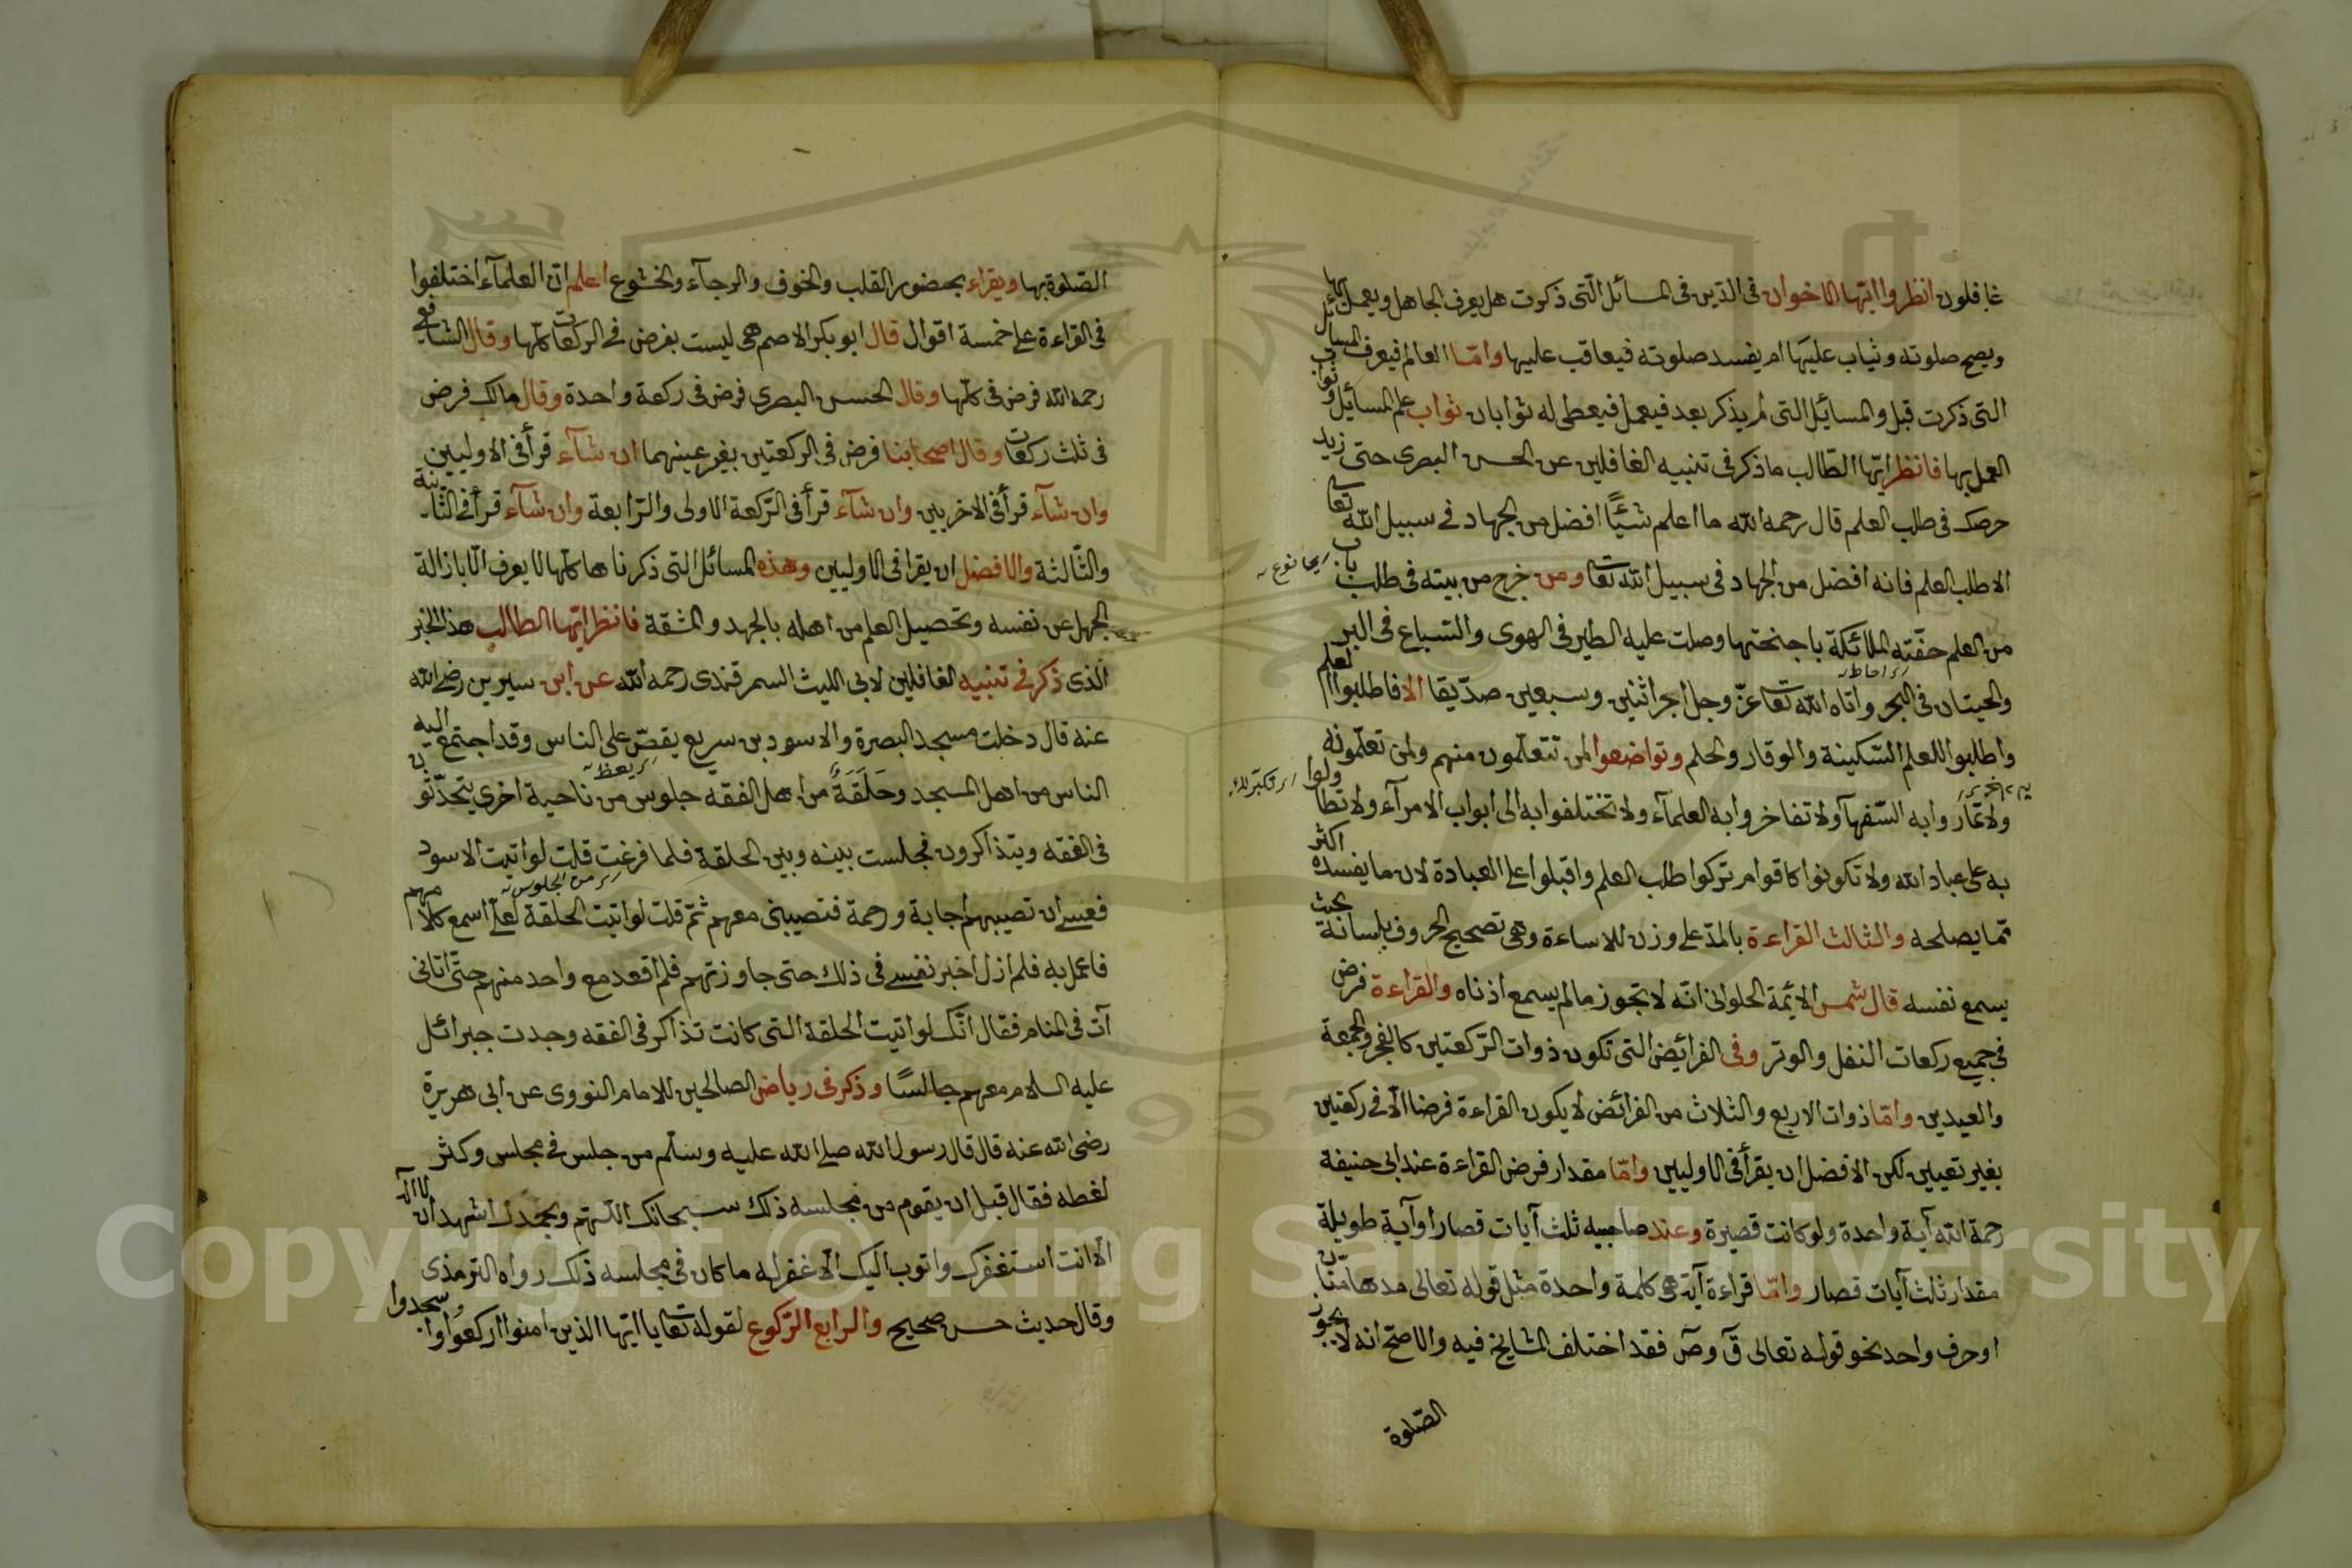 غافلون انظروا ايّها الاخوان فى الدّين فى المسائل الّتى ذكرت هل يعرف الجاهل ويعمل بها
ويصح صلوته ويثاب عليها ام يفسد صلوته فيعاقب عليها وامّا العالم فيعرف المسائل
التى ذكرت قبل والمسايئل التى لم يذكر بعد فيعمل فيعطى له ثوابان ثواب علم المسائيل وثواب
العمل بها فانظر ايّها الطّالب ما ذكر فى تنبيه الغافلين عن الحسن البصرى حتى زيد
حرصك فى طلب العلم قال رحمه الله ما اعلم شيئًا افضل من الجهاد فى سبيل الله تعا
الا طلب العلم فانه افضل من الجهاد فى سبيل الله تعا ومن خرج من بيته فى طلب باب
من العلم حفّته الملائكة باجنحتها وصلت عليه الطير فى الهوى والسّباع فى البر
والحيتان فى البحر واتاه الله تعا عزّ وجل اجر اثنين وسبعين صدّيقا الا فاطلبوا العلم
واطلبوا للعلم السّكينة والوقار والحلم وتواضعوا لمن تتعلّمون منهم ولمن تعلّمونه
ولا تمار وا به السّفهآ ولا تفاخر وا به العلمآء ولا تختلفوا به الى ابواب الامرآء ولا تطاولوا
به على عباد الله ولا تكونوا كاقوام تركوا طلب العلم واقبلوا على العبادة لان ما يفسده اكثر
ممّا يصلحه والثالث القراءة بالمدّ على وزن للاساءة وهى تصحيح الحروف بلسانه بحيث
يسمع نفسه قال شمس الائمّة الحلوانى انّه لا تجوز مالم يسمع اذناه والقراءة فرض
فى جميع ركعات النفل والوتر وفى الفرائيض التى تكون ذوات الرّكعتين كالفجر والجمعة
والعيدين وامّا ذوات الاربع والثلاث من الفرائض لا يكون القراءة فرضا الّا فى ركعتين
بغير تعيين لكن الافضل ان يقرأ فى الاوليين وامّا مقدار فرض القراءة عند ابى حنيفة
رحمة الله آية واحدة ولو كانت قصيرة وعند صاحبيه ثلث آيات قصار او آية طويلة
مقدار ثلث آيات قصار وامّا قراءة آية هى كلمة واحدة مثل قوله تعالى مدهامّتان
او حرف واحد نحو قوله تعالى قٓ وصٓ فقد اختلف المشايخ فيه والاصحّ انه لا يجوز
الصّلوة
اى نوع
اى احاطه
الصّلوة بها ويقراء بحضور القلب والخوف والرجآء والخشوع اعلم انّ العلمآء اختلفوا
فى القراءة على خمسة اقوال قال ابو بكر الاصم هى ليست بفرض فى الركعات كلّها وقال الشافعى
رحمه الله فرض فى كلّها وقال الحسن البصرى فرض فى ركعة واحدة وقال مالك فرض
فى ثلث ركعات وقال اصحابنا فرض فى الركعتين بغير عينهما ان شآء قرأ فى الاوليين
وان شآء قرأ فى الاخريين وان شآء قرأ فى الرّكعة الاولى والرّابعة وان شآء قرأ فى الثّانية
والثّالثة والافضل ان يقرا فى الاوليين وهذه المسائل التى ذكرناها كلّها لا يعرف الّا بازالة
الجهل عن نفسه وتحصيل العلم من اهله بالجهد والمشقة فانظر ايّها الطالب هذ الخبر
الّذى ذكر فى تنبيه الغافلين لابى الليث السمرقندى رحمه الله عن ابن سيرين رضى الله
عنه قال دخلت مسجد البصرة والاسود بن سريع يقصّ على الناس وقد اجتمع اليه
اى يعظ
الناس من اهل المسجد وحَلَقَةٌ من اهل الفقه جلوس من ناحية اخرى يتحدّثون
فى الفقه ويتذاكرون فجلست بينه وبين الحلقة فلما فرغت قلت لو اتيت الاسود
اى من الجلوس
فعسى ان تصيبهم اجابة ورحمة فتصيبنى معهم ثمّ قلت لو اتيت الحلقة لعلّى اسمع كلامهم
فاعمل به فلم ازل اخبر نفسى فى ذلك حتى جاوزتهم فلم اقعد مع واحد منهم حتّى اتانى
آت فى المنام فقال انّك لو اتيت الحلقة التى كانت تذاكر فى الفقه وجدت جبرائل
عليه السلام معهم جالسًا وذكر فى رياض الصالحين للامام النووى عن ابى هريرة
رضى الله عنه قال قال رسول الله صلى الله عليه وسلّم من جلس فى مجلس وكثر
لغطه فقال قبل ان يقوم من مجلسه ذلك سبحانك اللّهم وبحمدك اشهد ان لا اله
الّا انت استغفرك واتوب اليك الّا غفر له ما كان فى مجلسه ذلك رواه الترمذى
وقال حديث حسن صحيح والرابع الرّكوع لقوله تعا يا ايّها الذين امنوا اركعوا واسجدوا
Copyright © King Saud University
1957